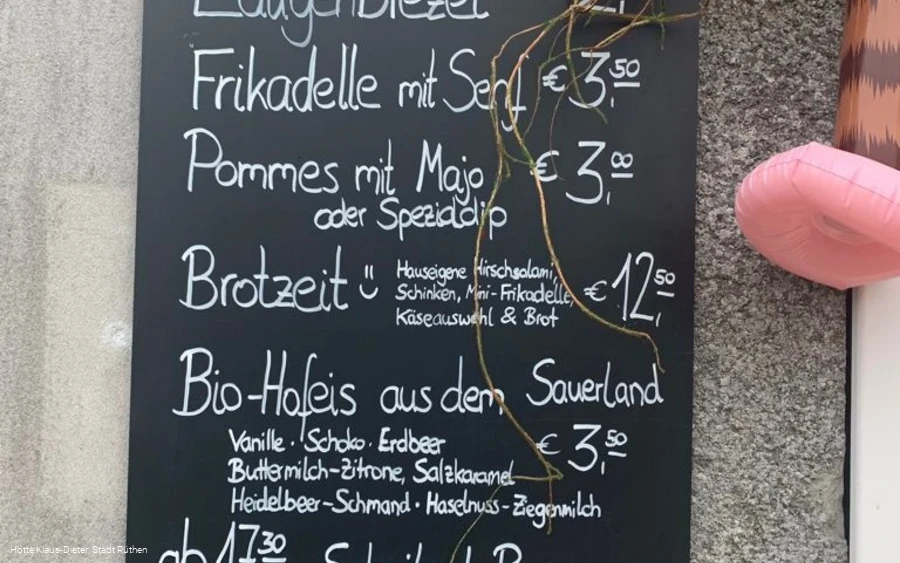 Laugenbrezel
Frikadelle mit Senf € 3,50
Pommes mit Majo € 3,00
oder Spezialdip
Brotzeit :) Hauseigene Hirschsalami,
Schinken, Mini-Frikadelle, € 12,50
Käseauswahl & Brot
Bio-Hofeis aus dem Sauerland
Vanille · Schoko · Erdbeer € 3,50
Buttermilch-Zitrone, Salzkaramel
Heidelbeer-Schmand · Haselnuss-Ziegenmilch
ab 17.30
Hötte Klaus-Dieter, Stadt Rüthen